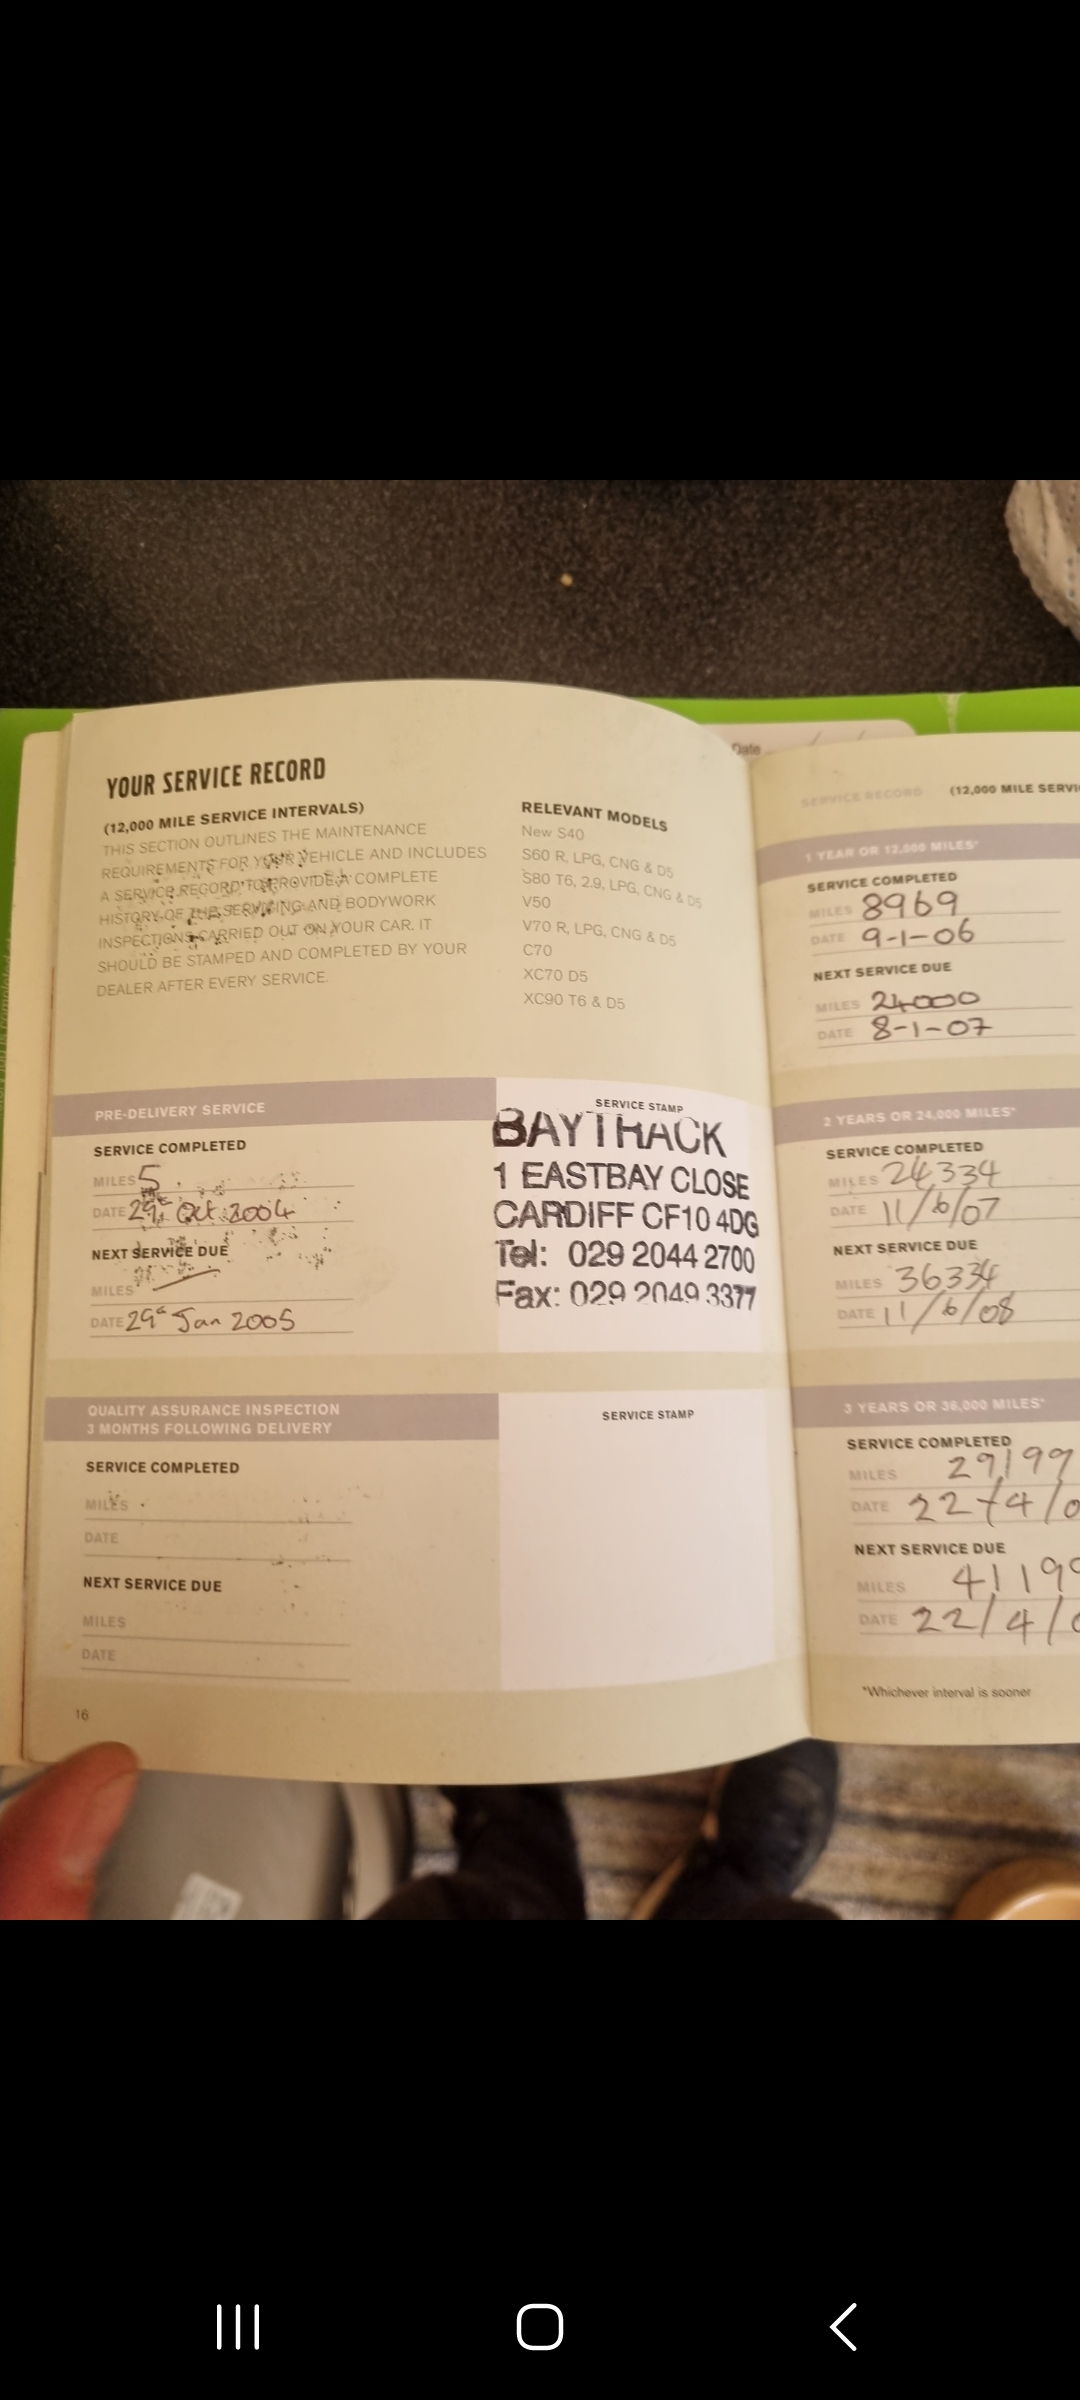 YOUR SERVICE RECORD
(12,000 MILE SERVICE INTERVALS)
THIS SECTION OUTLINES THE MAINTENANCE
REQUIREMENTS FOR YOUR VEHICLE AND INCLUDES
A SERVICE RECORD TO PROVIDE A COMPLETE
HISTORY OF THE SERVICING AND BODYWORK
INSPECTIONS CARRIED OUT ON YOUR CAR. IT
SHOULD BE STAMPED AND COMPLETED BY YOUR
DEALER AFTER EVERY SERVICE.
RELEVANT MODELS
New S40
S60 R, LPG, CNG & D5
S80 T6, 2.9, LPG, CNG & D5
V50
V70 R, LPG, CNG & D5
C70
XC70 D5
XC90 T6 & D5
PRE-DELIVERY SERVICE
SERVICE COMPLETED
MILES 5
DATE 29 Oct 2004
NEXT SERVICE DUE
MILES
DATE 29 Jan 2005
SERVICE STAMP
BAYTRACK
1 EASTBAY CLOSE
CARDIFF CF10 4DG
Tel: 029 2044 2700
Fax: 029 2049 3377
QUALITY ASSURANCE INSPECTION
3 MONTHS FOLLOWING DELIVERY
SERVICE COMPLETED
MILES
DATE
NEXT SERVICE DUE
MILES
DATE
SERVICE STAMP
16
Date
SERVICE RECORD (12,000 MILE SERVI
1 YEAR OR 12,000 MILES*
SERVICE COMPLETED
MILES 8969
DATE 9-1-06
NEXT SERVICE DUE
MILES 24000
DATE 8-1-07
2 YEARS OR 24,000 MILES*
SERVICE COMPLETED
MILES 24334
DATE 11/6/07
NEXT SERVICE DUE
MILES 36334
DATE 11/6/08
3 YEARS OR 36,000 MILES*
SERVICE COMPLETED
MILES 29199
DATE 22/4/0
NEXT SERVICE DUE
MILES 41199
DATE 22/4/0
*Whichever interval is sooner